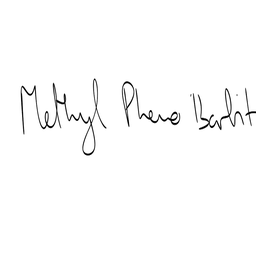 Methyl Pheno Barbit